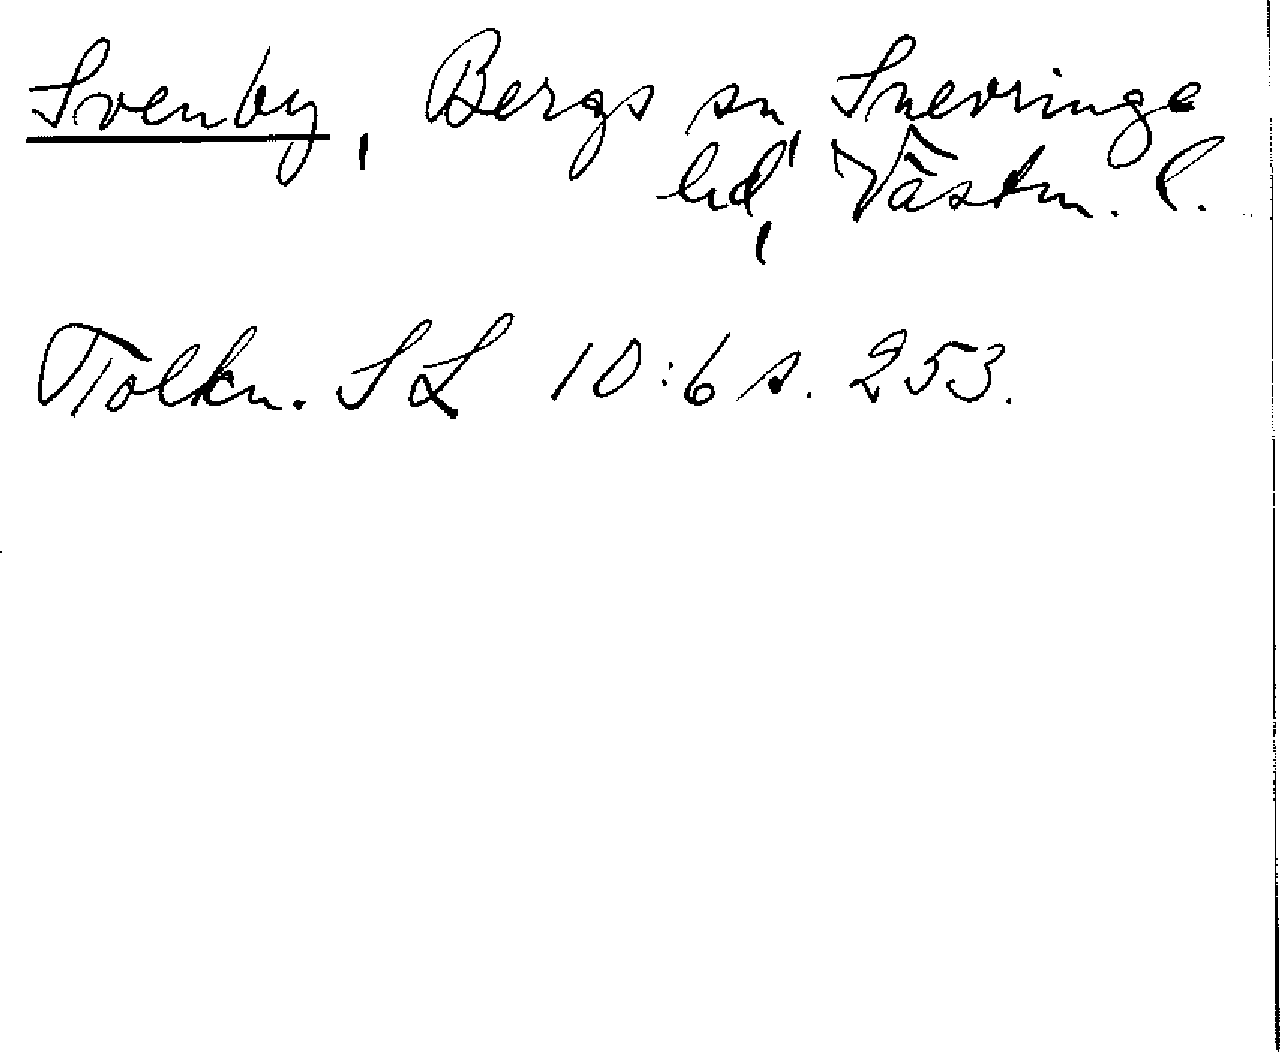 Svenby, Bergs sn, Snevringe
hd, Västm. l.
Tolkn. SL 10:6 s. 253.